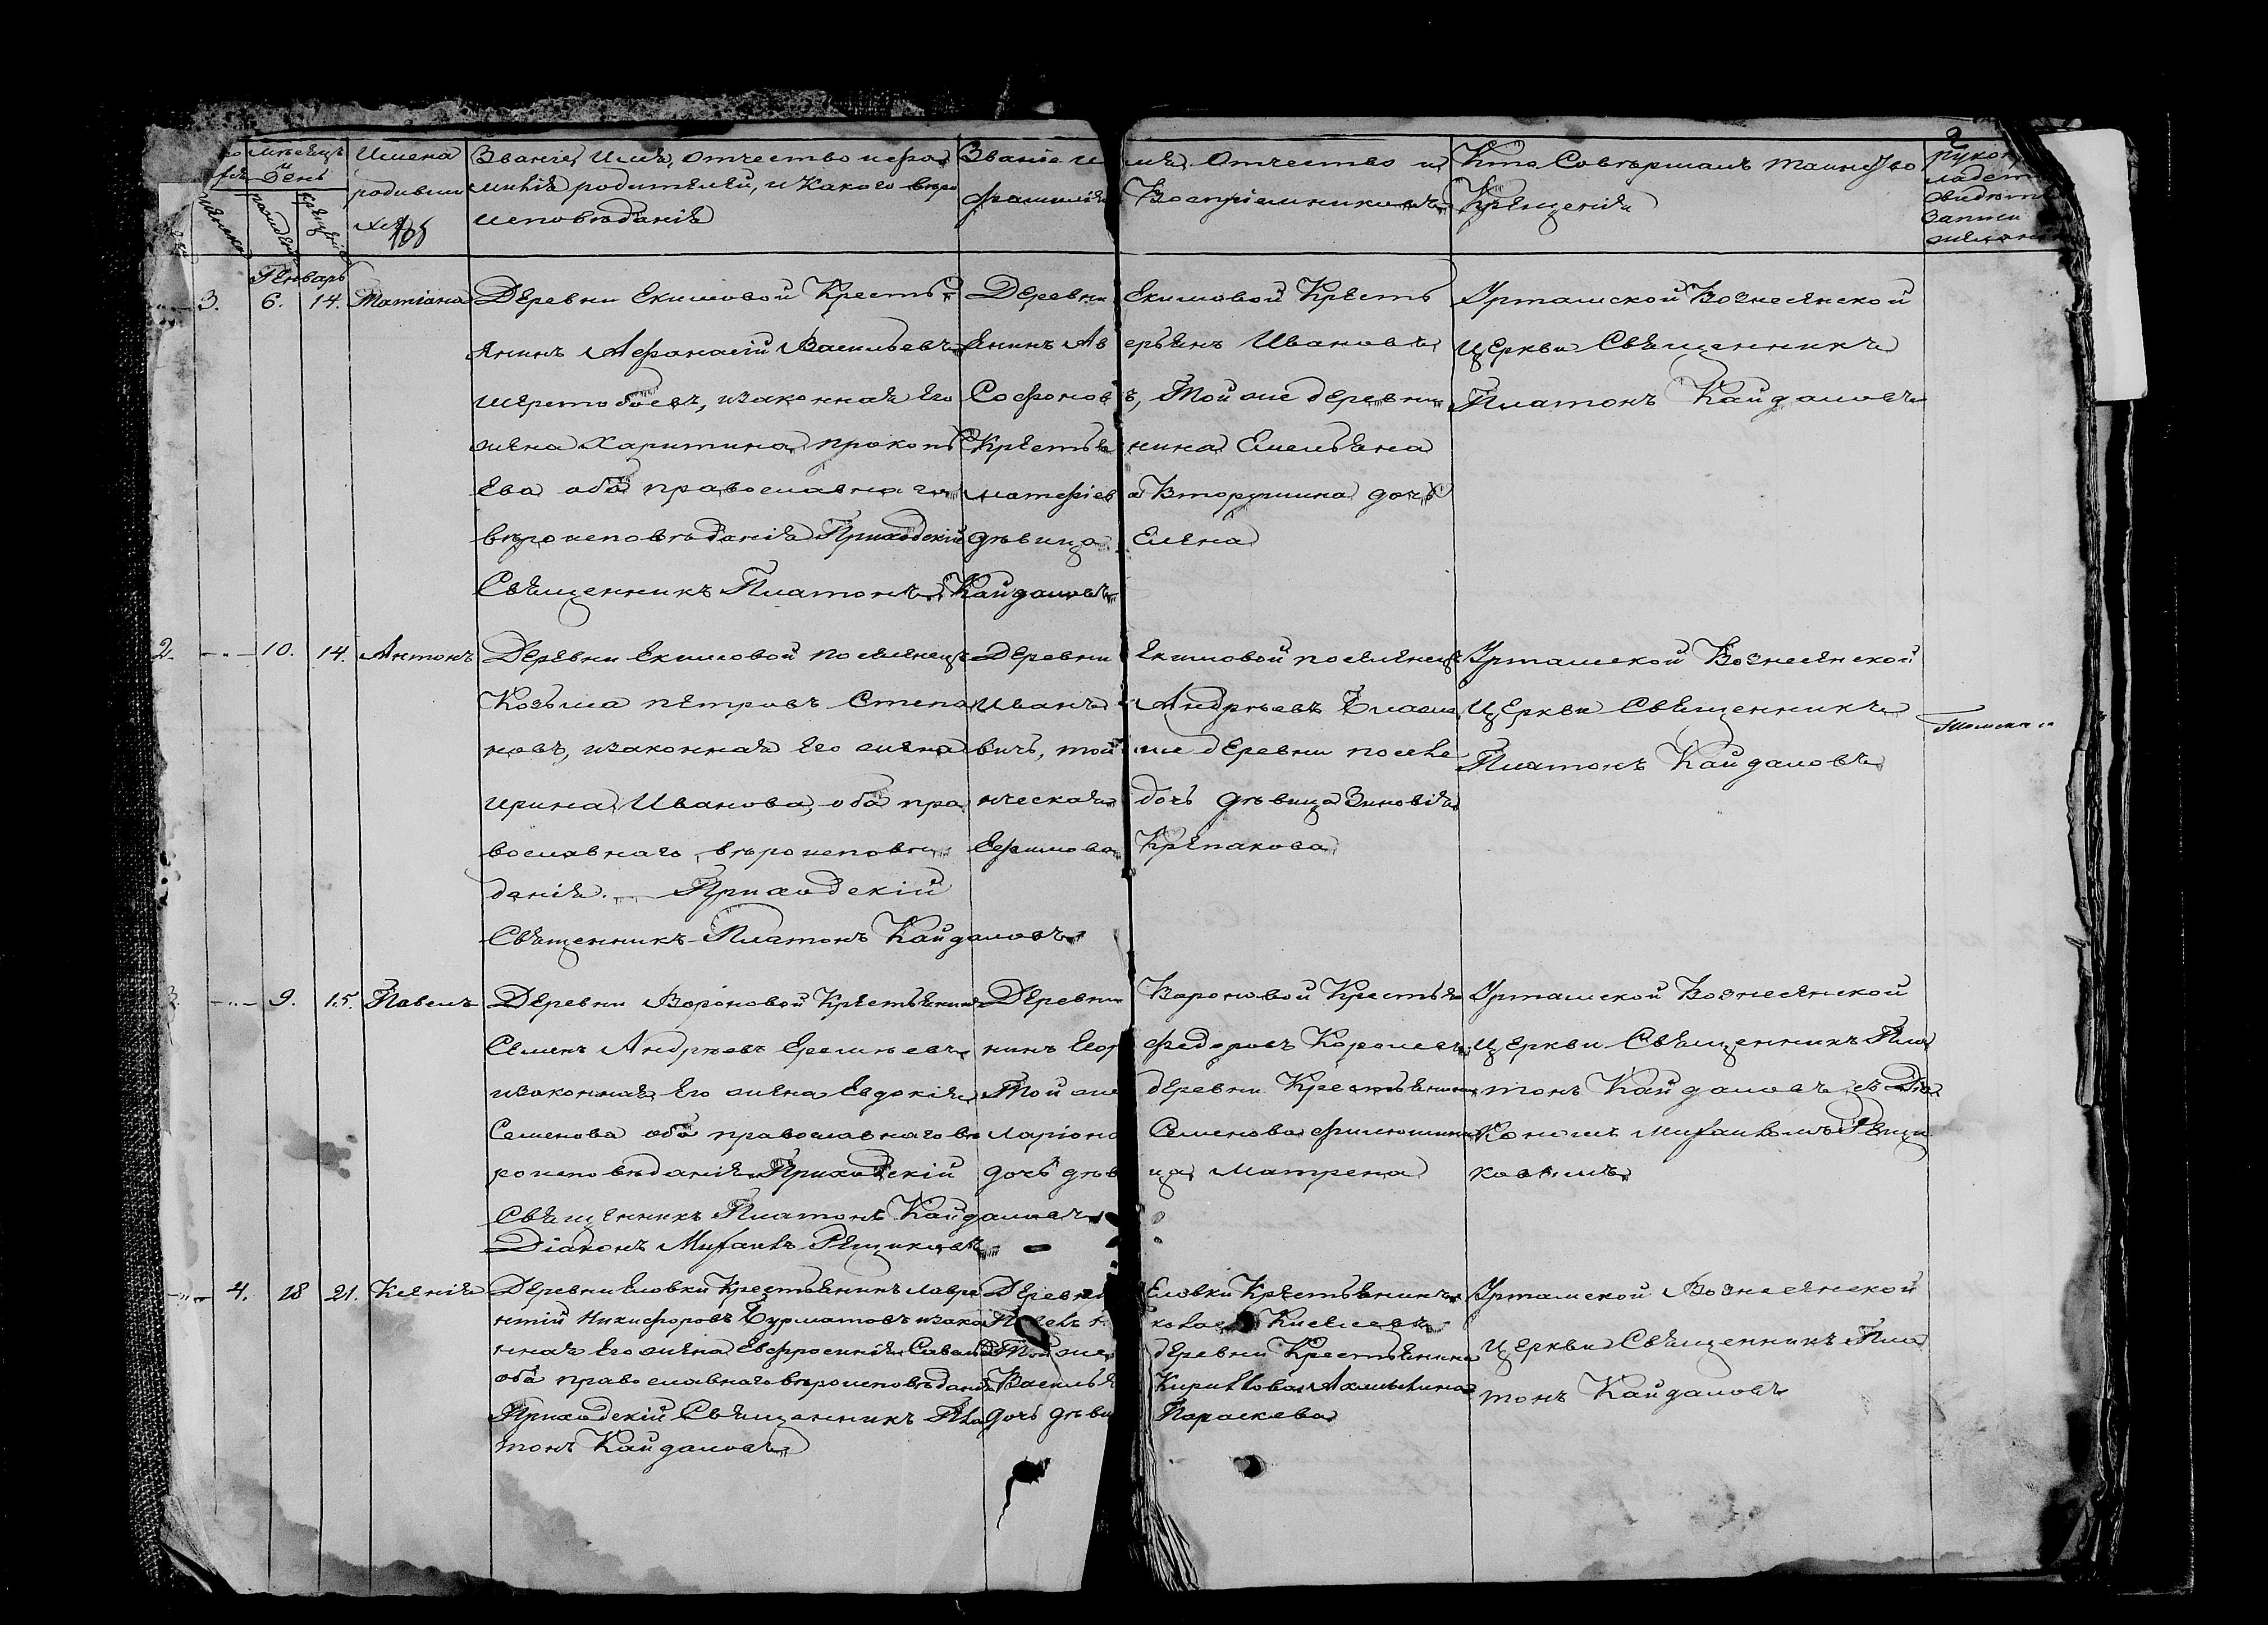 мѣсяцъ
и
день
рожденія
крещенія
Имена
родивши
хся
Званіе, Имя, отчество и фа
милія родителей, и какого вѣро
исповѣданія
Званіе и мя, Отчество и
фамилія Воспріемниковъ
Кто Совершалъ таинство
Крещенія
2
Генварь
3. 6. 14. Татіана
Деревни Екимовой Кресть
янинъ Афанасій Васильевъ
Шерстобоевъ, изаконная Его
жена Харитина прокопь
Ева оба православнаго
вѣроисповѣданія Приходскій
Священникъ Платонъ Кайдаловъ
Деревни Екимовой Кресть
Янинъ Ав ерьянъ Ивановъ
Софонов ъ, Той же деревни
Крестья нина Емельяна
матфіев а Вторушина дочь
дѣвица Елена
Урташской Вознесенской
Церкви Священникъ
Платонъ Кайдаловъ
2. 10. 14. Антонъ
Деревни Екимовой поселенецъ
Козьма петровъ Степа
новъ, изаконная Его жена
ирина Иванова, оба пра
вославнаго вѣроисповѣ
данія. Приходскій
Священникъ Платонъ Кайдаловъ
Деревни Екимовой поселенецъ
Иванъ Андрѣевъ
вичь, той же деревни поселе
нческая дочь дѣвица Зиновія
Ефимова Крепакова
Урташской Вознесенской
Церкви Священникъ
Платонъ Кайдаловъ
3. 9. 15. Павелъ
Деревни Вороновой Крестьянинъ
Семенъ Андрѣевъ Еремѣевъ
изаконная Его жена Евдокія
Семенова оба православнаго вѣ
роисповѣданія Приходскій
Священникъ Платонъ Кайдаловъ
Діаконъ Михаилъ Рещиковъ
Деревни Вороновой Крестья
нинъ Егор федоровъ Королевъ
Той же деревни Крестьянина
Ларіона Семенова филюшина
дочь дѣв ица Матрена
Урташской Вознесенской
Церкви Священникъ Пла
тонъ Кайдаловъ, съ Діа
Кономъ Михаиломъ Рещи
ковымъ
4. 18 21. Ксенія
Деревни Еловки Крестьянинъ Лавре
нтій Никифоровъ Бурматовъ изако
нная Его жена Евфросинія
оба православнаго вѣроисповѣданія
Приходскій Священникъ Пла
тонъ Кайдаловъ
Деревни Еловки Крестьянинъ
колаевъ Киселевъ
Той же деревни Крестьянина
Василья Кирилова
дочь дѣви Параскева
Урташской Вознесенской
Церкви Священникъ Пла
тонъ Кайдаловъ